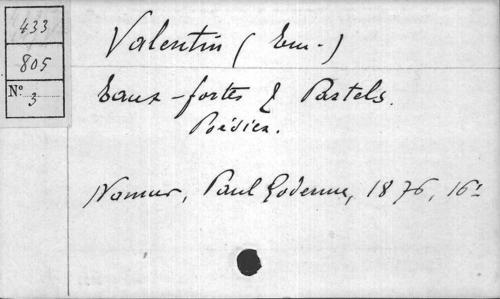 433
805
N° 3
Valentin (Em.)
Eaux-fortes & Pastels.
Poésies.
Namur, Paul Godenne, 1876, 16°